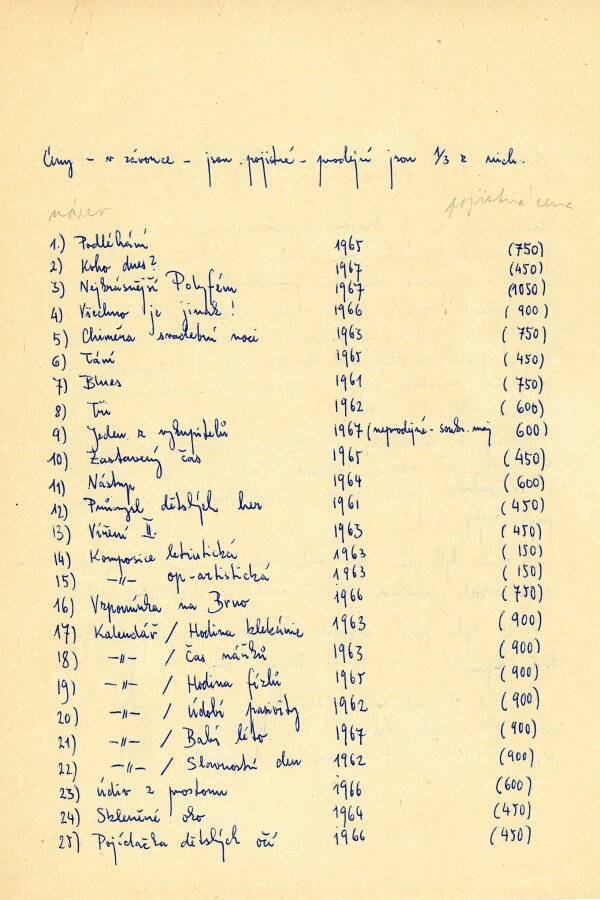 Ceny – v závorce – jsou pojistné – prodejní jsou 1/3 z nich.
název pojistná cena
1.) Podléhání 1965 (750)
2) Koho dnes? 1967 (450)
3) Nejkrásnější Polyfém 1967 (1050)
4) Všechno je jinak! 1966 (900)
5) Chiméra svatební noci 1963 (750)
6) Tání 1965 (450)
7) Blues 1961 (750)
8) Tři 1962 (600)
9) Jeden z vykupitelů 1967 (neprodejné – soukr. maj 600)
10) Zastavený čas 1965 (450)
11) Nástup 1964 (600)
12) Průmysl dětských her 1961 (450)
13) Víření II. 1963 (450)
14) Komposice letristická 1963 (150)
15) –"– op-artistická 1963 (150)
16) Vzpomínka na Brno 1966 (750)
17) Kalendář / Hodina klekánic 1963 (900)
18) –"– / Čas nářků 1963 (900)
19) –"– / Hodina fízlů 1965 (900)
20) –"– / Údobí pasivity 1962 (900)
21) –"– / Babí léto 1967 (900)
22) –"– / Slavnostní den 1962 (900)
23) Údiv z prostoru 1966 (600)
24) Skleněné oko 1964 (450)
25) Pojídačka dětských očí 1966 (450)